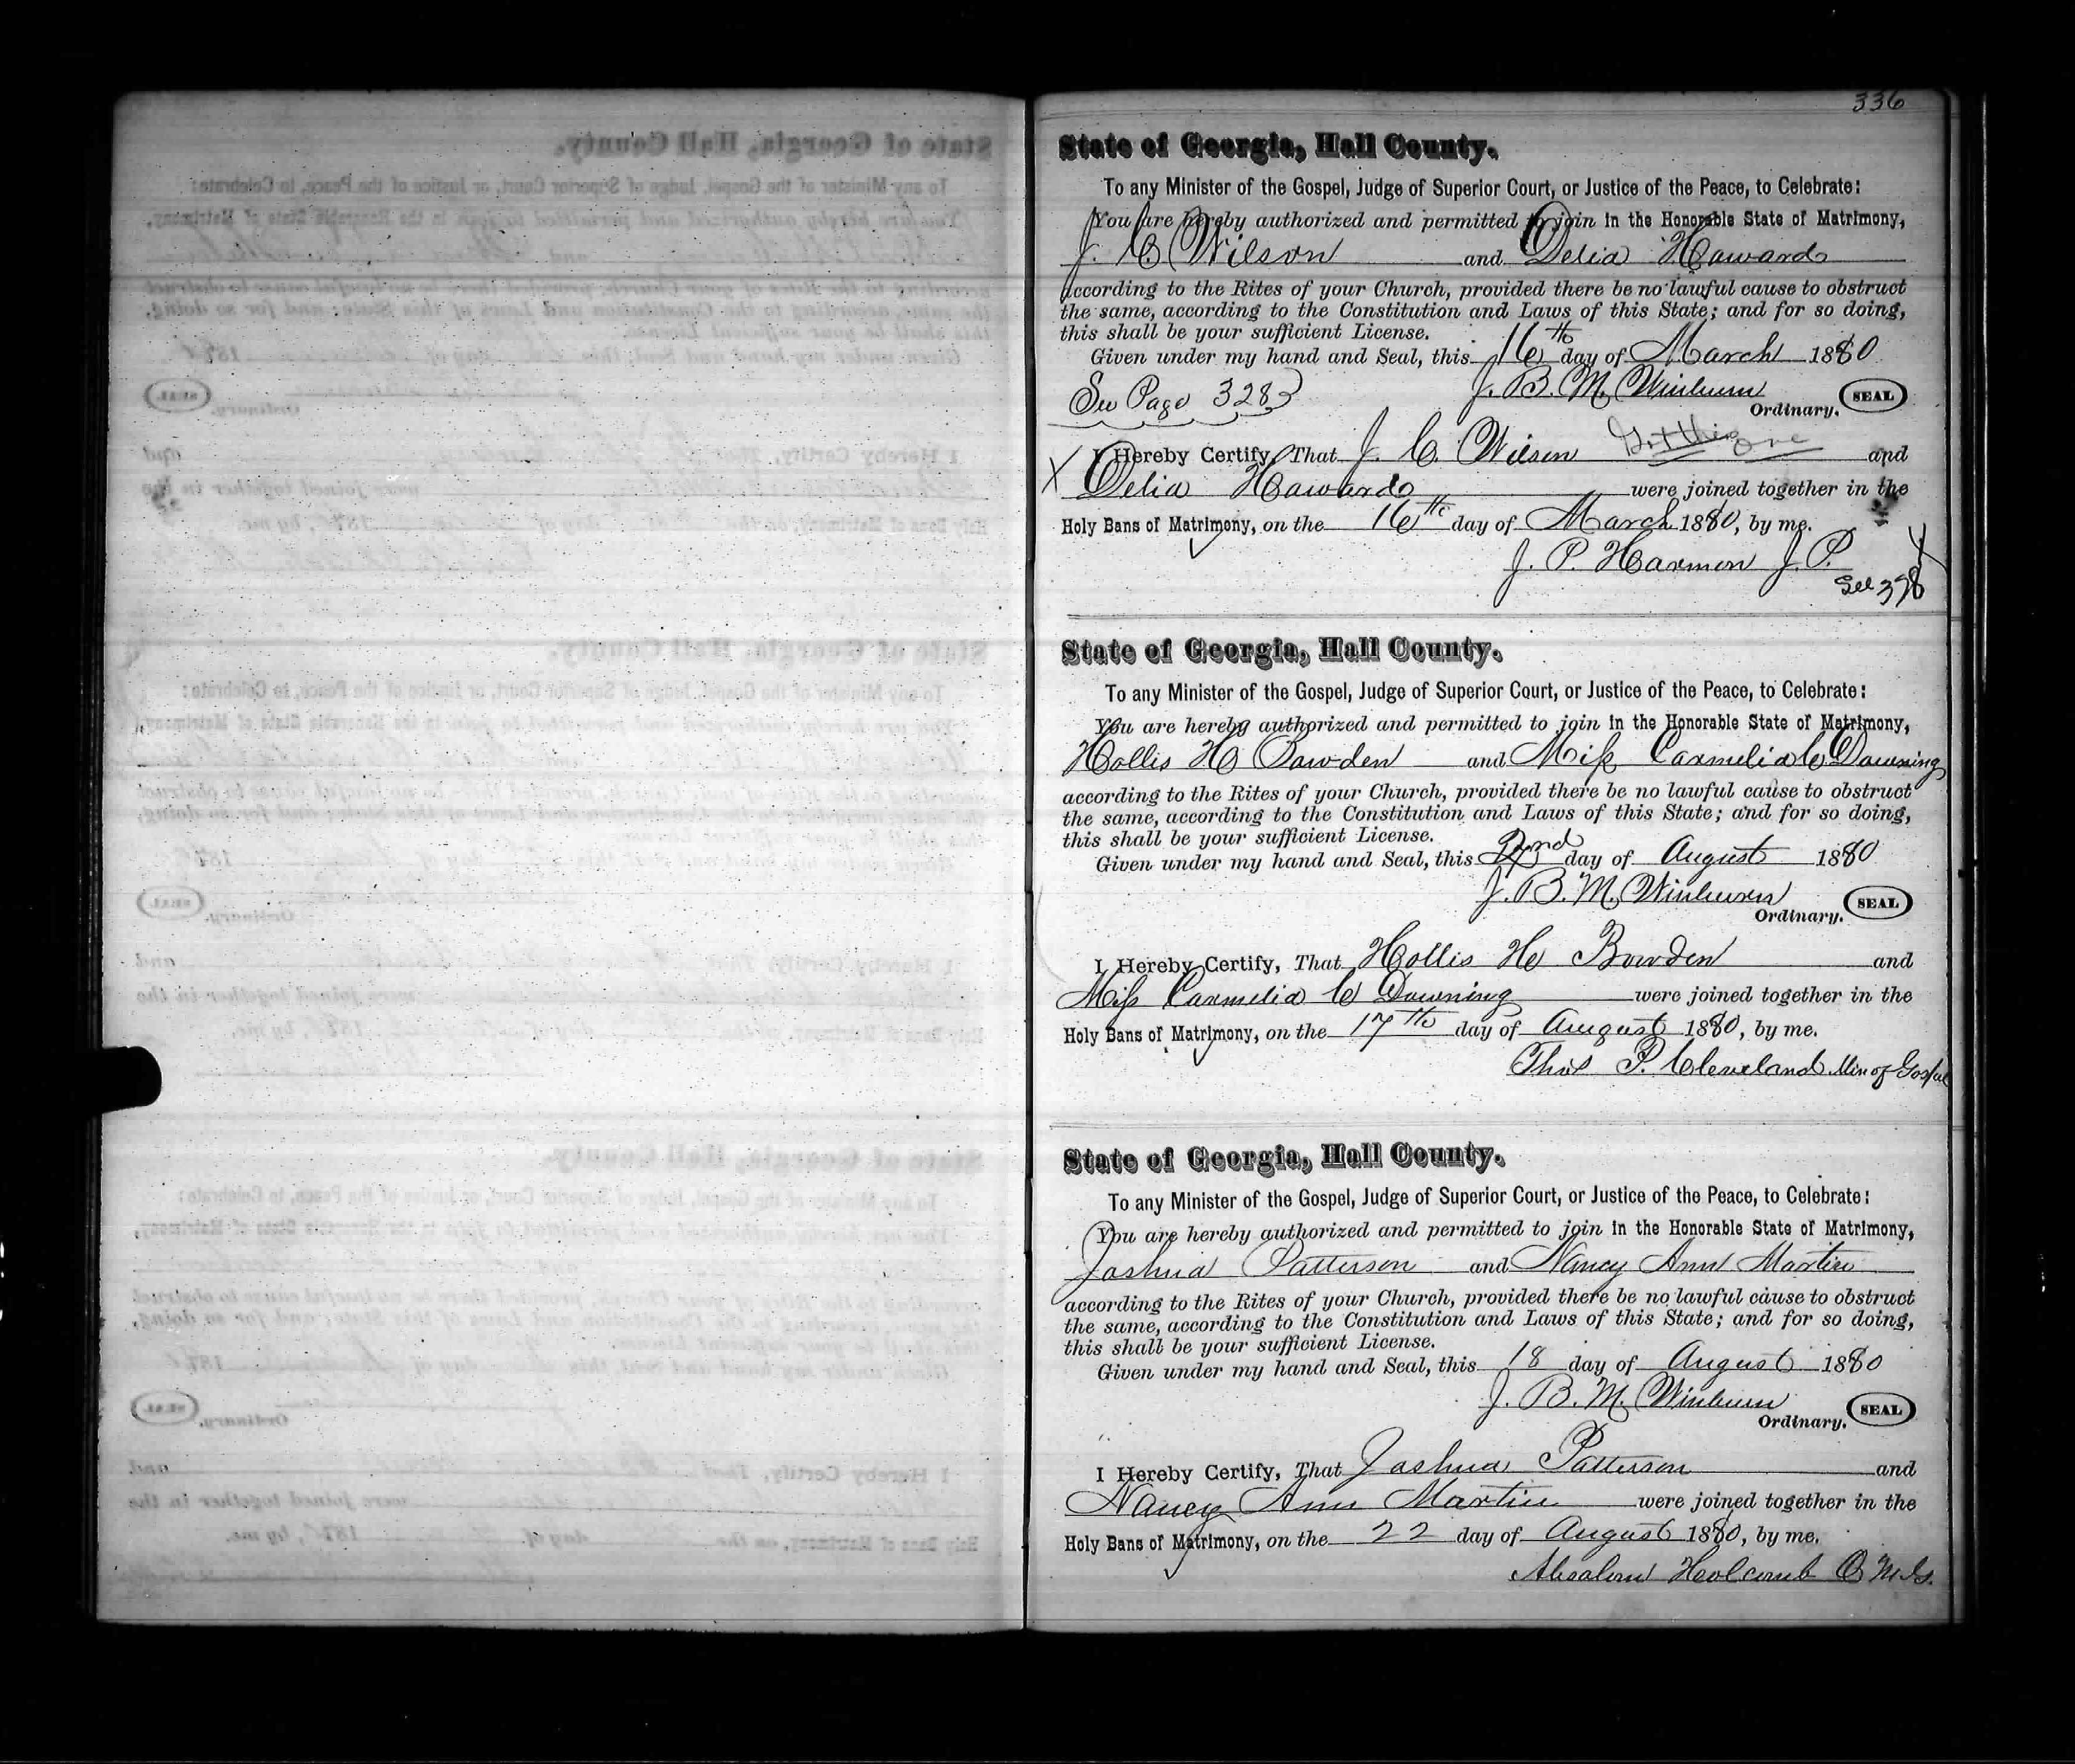 336
State of Georgia, Hall County.
To any Minister of the Gospel, Judge of Superior Court, or Justice of the Peace, to Celebrate:
You are hereby authorized and permitted to join in the Honorable State of Matrimony,
J. C. Wilson and Delia Hawards
according to the Rites of your Church, provided there be no lawful cause to obstruct
the same, according to the Constitution and Laws of this State; and for so doing,
this shall be your sufficient License.
Given under my hand and Seal, this 16th day of March 1880
See Page 328 J. B. M. Winburn
Ordinary. SEAL
I Hereby Certify, That J. C. Wilson Got this one and
X Delia Hawards were joined together in the
Holy Bans of Matrimony, on the 16th day of March 1880, by me.
J. P. Harmon J. P. X
See 328
State of Georgia, Hall County.
To any Minister of the Gospel, Judge of Superior Court, or Justice of the Peace, to Celebrate:
You are hereby authorized and permitted to join in the Honorable State of Matrimony,
Hollis H Bowden and Miss Carmelia C Downing
according to the Rites of your Church, provided there be no lawful cause to obstruct
the same, according to the Constitution and Laws of this State; and for so doing,
this shall be your sufficient License.
Given under my hand and Seal, this 2nd day of August 1880
J. B. M. Winburn
Ordinary. SEAL
I Hereby Certify, That Hollis H Bowden and
Miss Carmelia C Downing were joined together in the
Holy Bans of Matrimony, on the 17th day of August 1880, by me.
Thos P. Cleveland Min of Gospel
State of Georgia, Hall County.
To any Minister of the Gospel, Judge of Superior Court, or Justice of the Peace, to Celebrate:
You are hereby authorized and permitted to join in the Honorable State of Matrimony,
Joshua Patterson and Nancy Ann Martin
according to the Rites of your Church, provided there be no lawful cause to obstruct
the same, according to the Constitution and Laws of this State; and for so doing,
this shall be your sufficient License.
Given under my hand and Seal, this 18 day of August 1880
J. B. M. Winburn
Ordinary. SEAL
I Hereby Certify, That Joshua Patterson and
Nancy Ann Martin were joined together in the
Holy Bans of Matrimony, on the 22 day of August 1880, by me.
Absalom Holcomb O M G.